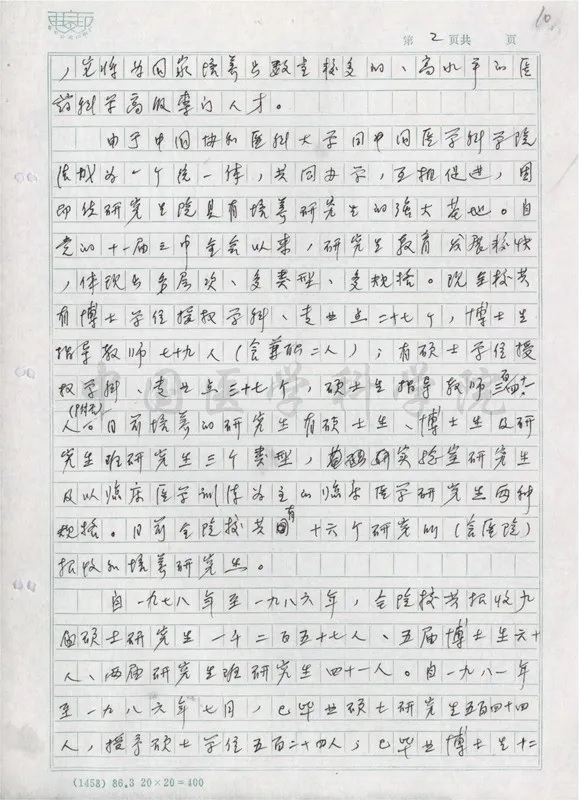 第 2 页共 页
10
，定将为国家培养出数量较多的、高水平的医
药科学高级专门人才。
由于中国协和医科大学同中国医学科学院
院校为一个院一体，共同办学，互相促进，因
即使研究生院具有培养研究生的强大基地。自
党的十一届三中全会以来，研究生教育发展较快
，体现出多层次、多类型、多规格。现全校共
有博士学位授权学科、专业点二十七个，博士生
指导教师七十九人（含兼职二人）；有硕士学位授
权学科、专业点三十七个，硕士生指导教师三百四十六
人。目前培养的研究生有硕士生、博士生及研
究生班研究生三个类型，有实验室研究生
及以临床医学训练为主的临床医学研究生两种
规格。目前全院校共有十六个研究所（含医院）
招收和培养研究生。
自一九七八年至一九八六年，全院校共招收九
届硕士研究生一千二百五十七人、五届博士生六十
人、两届研究生班研究生四十一人。自一九八一年
至一九八六年七月，已毕业硕士研究生五百四十四
人，授予硕士学位五百二十四人；已毕业博士生十二
中国医学科学院
(1458) 86.3 20×20=400